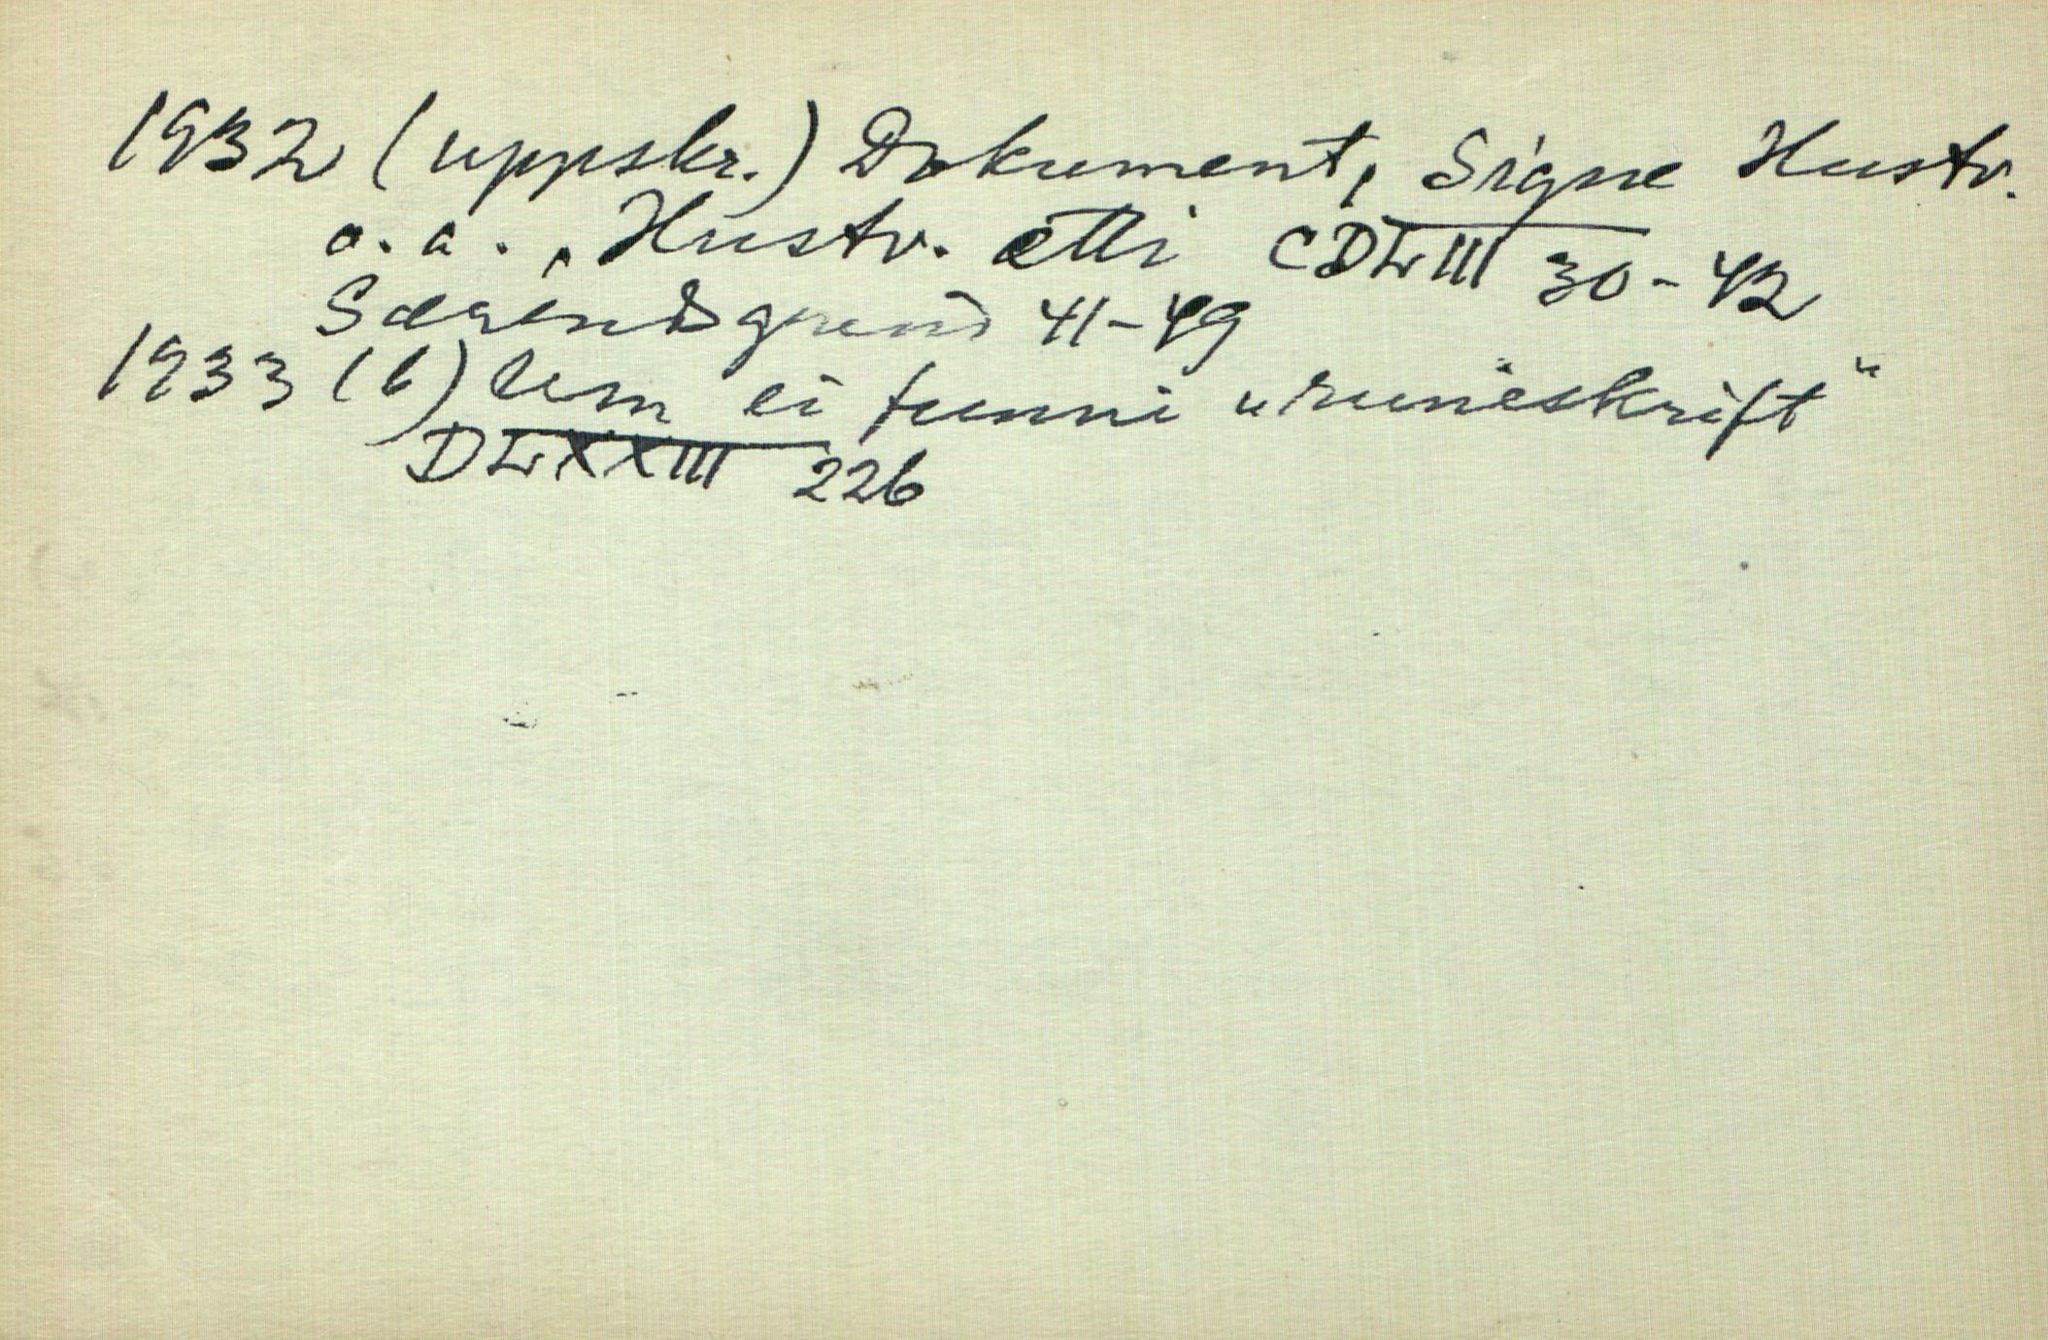 1932 (uppskr.) Dokument, Signe Hustv.
o.a., Hustv. ætti CDLIII 30-42
grunn 41-49
1933 (b) Um ei funni "runeskrift"
DLXXIII 226